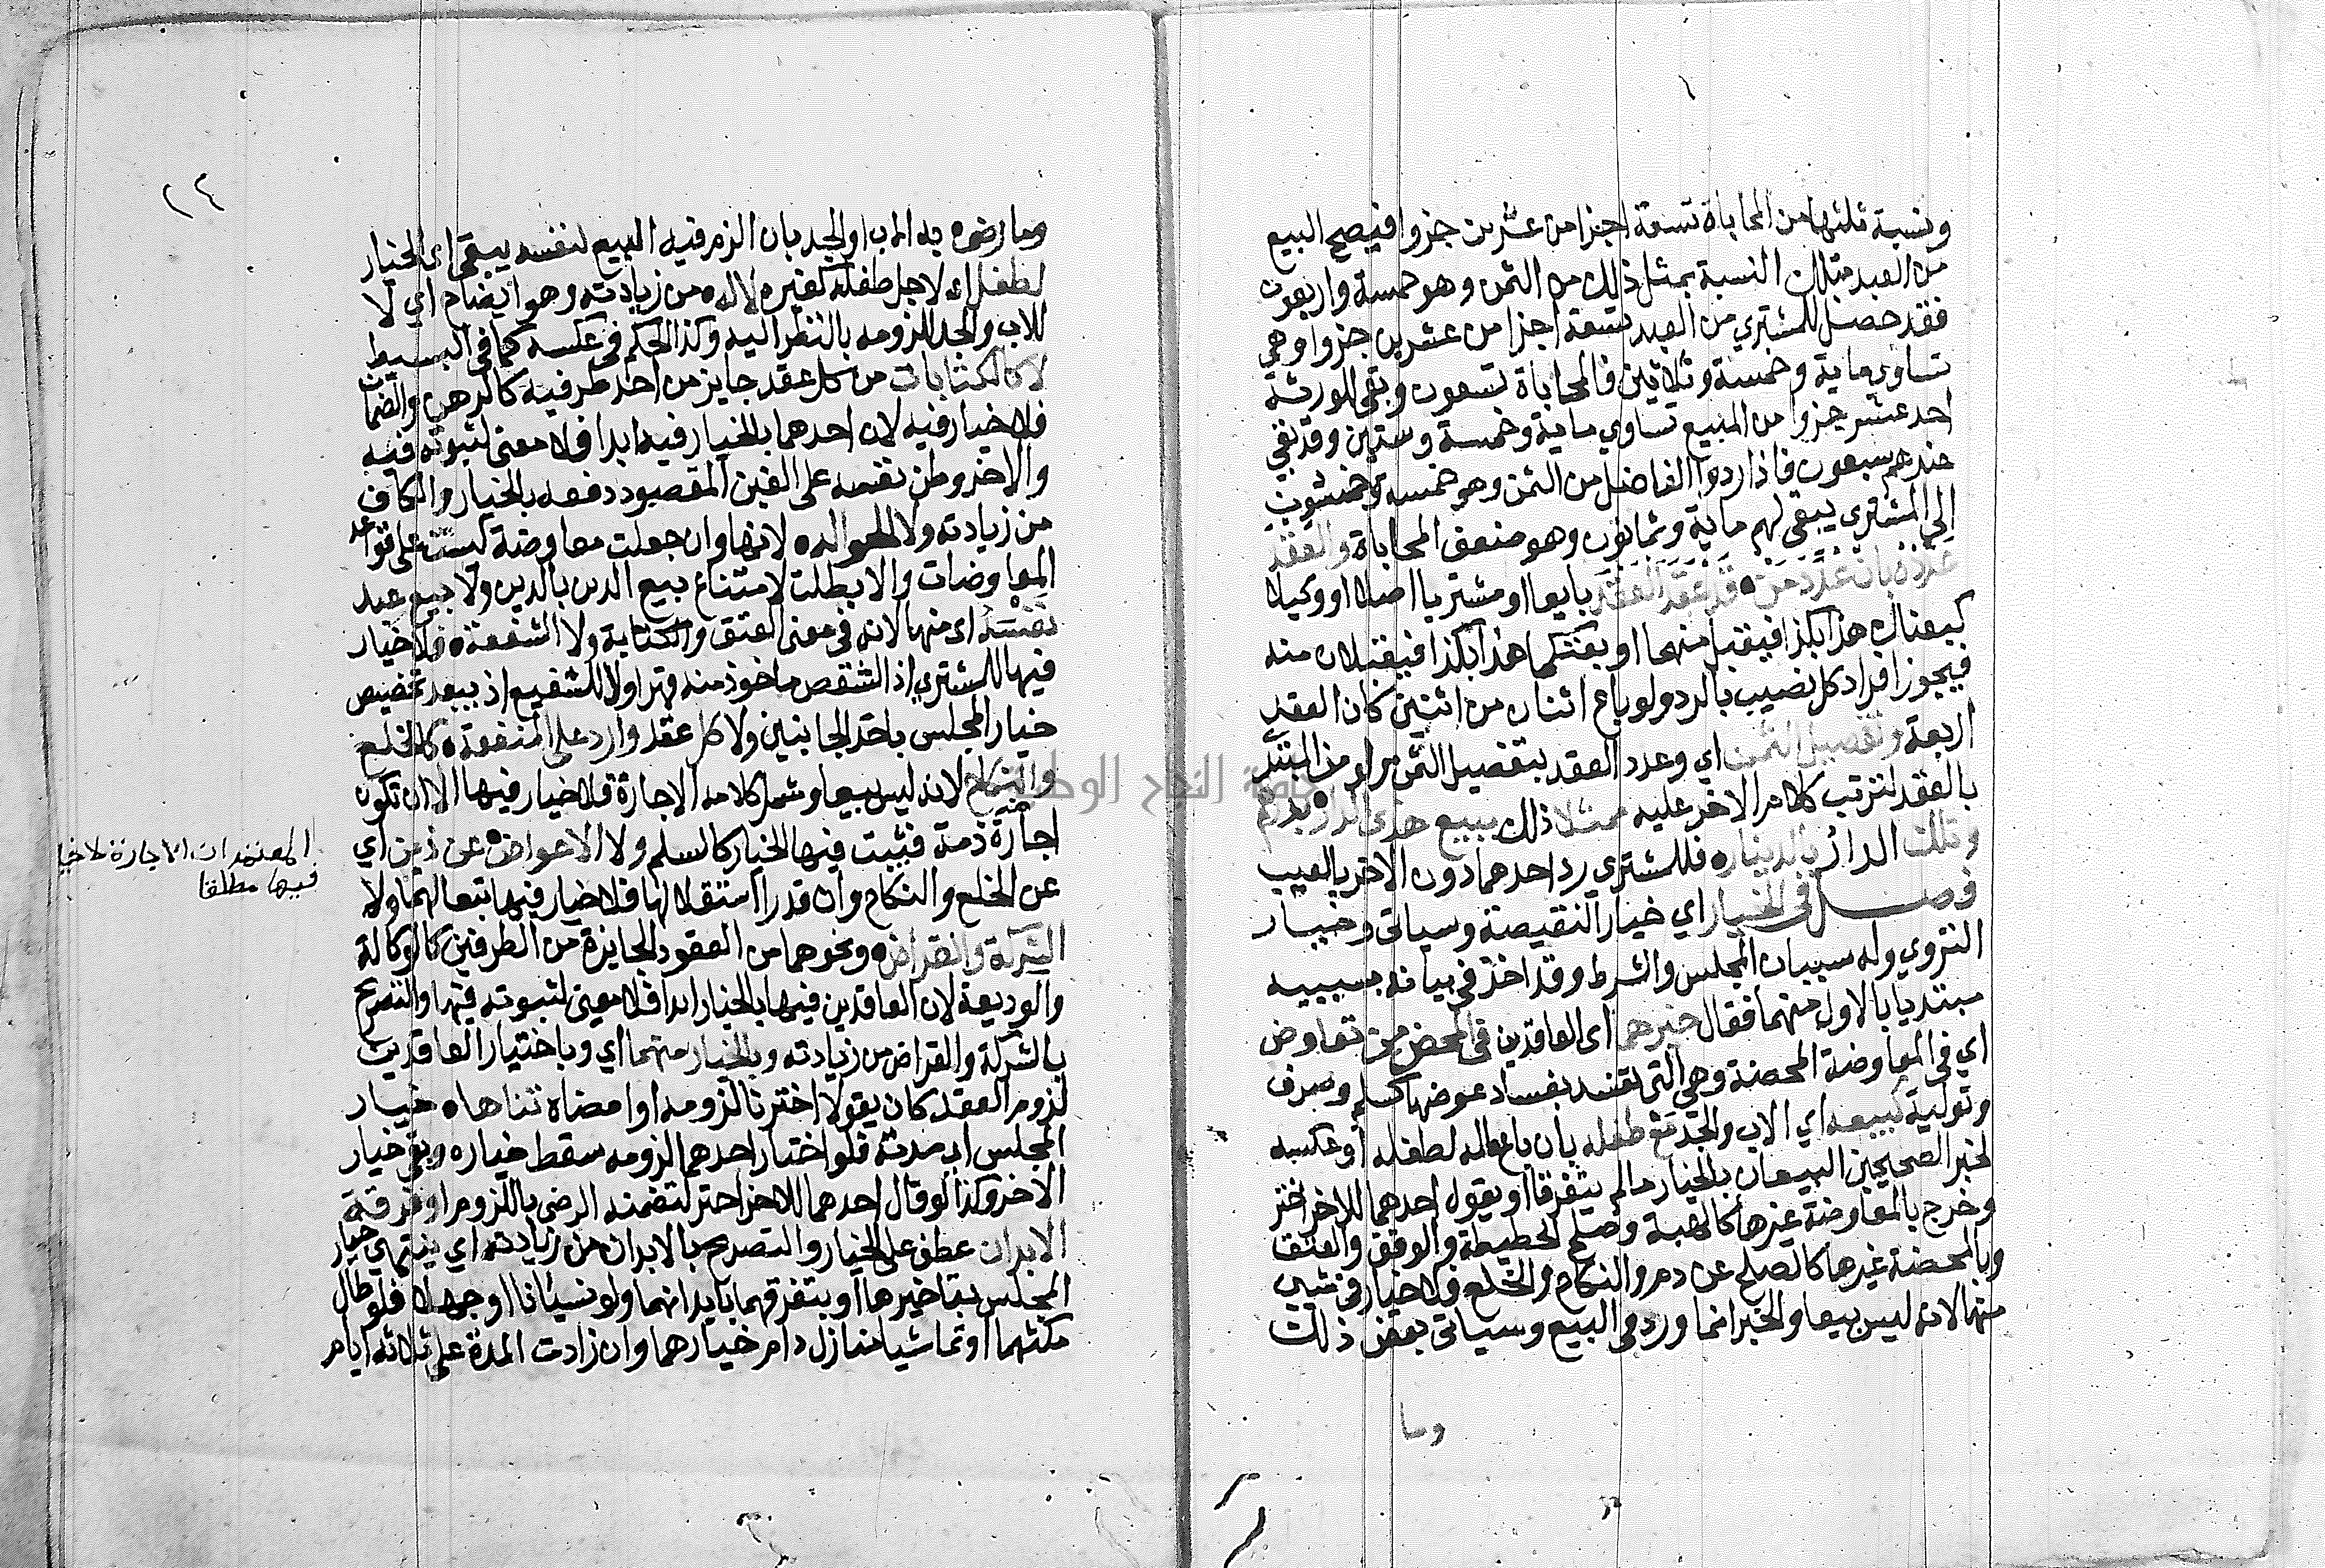 ونسبة ثلثها من المحاباة تسعة اجزا من عشرين جزوا فيصح البيع
من العبد بتلك النسبة بمثل ذلك من الثمن وهو خمسة واربعون
فقد حصل للمشتري من العبد تسعة اجزا من عشرين جزوا وهي
تساوي ماية وخمسة وثلاثين فالمحاباة تسعون وبقي للورثة
احد عشر جزوا من المبيع تساوي ماية وخمسة وستين وقد بقي
عندهم سبعون فاذا ردوا الفاضل من الثمن وهو خمسة وعشرون
الى المشتري يبقى لهم ماية وثمانون وهو ضعف المحاباة والعقد
عدده بان عدد من قد عقد العقد بايعا او مشتريا اصلا او وكيلا
كبعناك هذا بكذا فيقبل منهما او بعتكما هذا بكذا فيقبلان منه
فيجوز افراد كل نصيب بالرد ولو باع اثنان من اثنين كان العقد
اربعة وتفصيل الثمن اي وعدد العقد بتفصيل الثمن من المبتدي
بالعقد لترتب كلام الاخر عليه مثلا ذلك ببيع هذي الدار بدرهم
وتلك الدار بالدينار فللمشتري رد احدهما دون الاخر بالعيب
فصل في الخيار اي خيار النقيصة وسياتي وخيار
التروي وله سببان المجلس والشرط وقد اخذ في بيانه بسببيه
مبتديا بالاول منهما فقال خيرهما اى العاقدين في المحض من تعاوض
اي في المعاوضة المحضة وهي التي تفسد بفساد عوضها كسلم وصرف
وتولية كبيعه اي الاب والجد مع طفله بان باع ماله لطفله او عكسه
لخبر الصحيحين البيعان بالخيار مالم يتفرقا او يقول احدهما للاخر اختر
وخرج بالمعاوضة غيرها كالهبة وصلح الحطيطة والوقف والعتق
وبالمحضة غيرها كالصلح عن دم والنكاح والخلع فلا خيار في شي
منها لانه ليس بيعا والخبر انما ورد في البيع وسياتي بعض ذلك
وما
١٤
وما رضوه به الاب او الجد بان الزم فيه البيع لنفسه يبقى اى الخيار
لطفل اى لاجل طفله كغيره لاله من زيادته وهو ايضاح اي لا
للاب والجد للزومه بالنظر اليه وكذا الحكم في عكسه كما في البسيط
لا كالكتابات من كل عقد جايز من احد طرفيه كالرهن والضمان
فلا خيار فيه لان احدهما بالخيار فيه ابدا فلا معنى لثبوته فيه
والاخر وطن نفسه على الغبن المقصود دفعه بالخيار والكاف
من زيادته ولا الحواله لانها وان جعلت معاوضة ليست على قواعد
المعاوضات والا بطلت لامتناع بيع الدين بالدين ولا بيع عبد
نفسه اى منها لانه في معنى العتق والكتابة ولا الشفعة فلا خيار
فيها للمشتري اذ الشقص ماخوذ منه قهرا ولا للشفيع اذ يبعد تخصيص
خيار المجلس باحد الجانبين ولا كل عقد وارد على المنفعة كالخلع
والنكاح لانه ليس بيعا وشمل كلامه الاجارة فلا خيار فيها الا ان تكون
اجارة ذمة فيثبت فيها الخيار كالسلم ولا الاعواض عن ذين اي
عن الخلع والنكاح وان قدرا استقلالها فلا خيار فيها تبعا لهما ولا
الشركة والقراض ونحوهما من العقود الجايزة من الطرفين كالوكالة
والوديعة لان العاقدين فيها بالخيار ابدا فلا معنى لثبوته فيها والتصريح
بالشركة والقراض من زيادته وبالخيار منهما اي وباختيار العاقدين
لزوم العقد كان يقولا اخترنا لزومه او امضاه تناها خيار
المجلس اي مدته فلو اختار احدهما لزومه سقط خياره وبقي خيار
الاخر وكذا لو قال احدهما للاخر اختر لتضمنه الرضى باللزوم او فرقة
الابدان عطف على الخيار والتصريح بالابدان من زيادته اي ينتهي خيار
المجلس بتاخيرها او بتفرقهما بابدانهما ولو نسيانا او جهلا فلو طال
مكثهما او تماشيا منازل دام خيارهما وان زادت المدة على ثلاثة ايام
المعتمد ان الاجارة لا خيار
فيها مطلقا